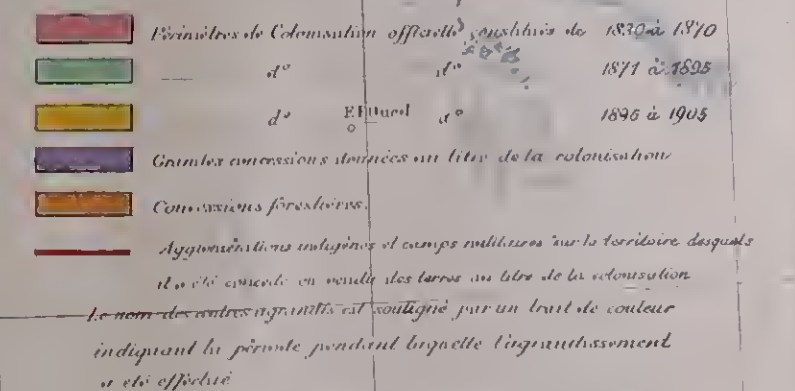 Périmètres de Colonisation officielle constitués de 1830 à 1870
d° d° 1871 à 1895
d° El Oued d° 1896 à 1905
Grandes concessions données au titre de la colonisation
Concessions forestières.
Agglomérations indigènes et camps militaires sur le territoire desquels
il a été concédé ou vendu des terres au titre de la colonisation
Le nom des centres agrandis est souligné par un trait de couleur
indiquant la période pendant laquelle l'agrandissement
a été effectué